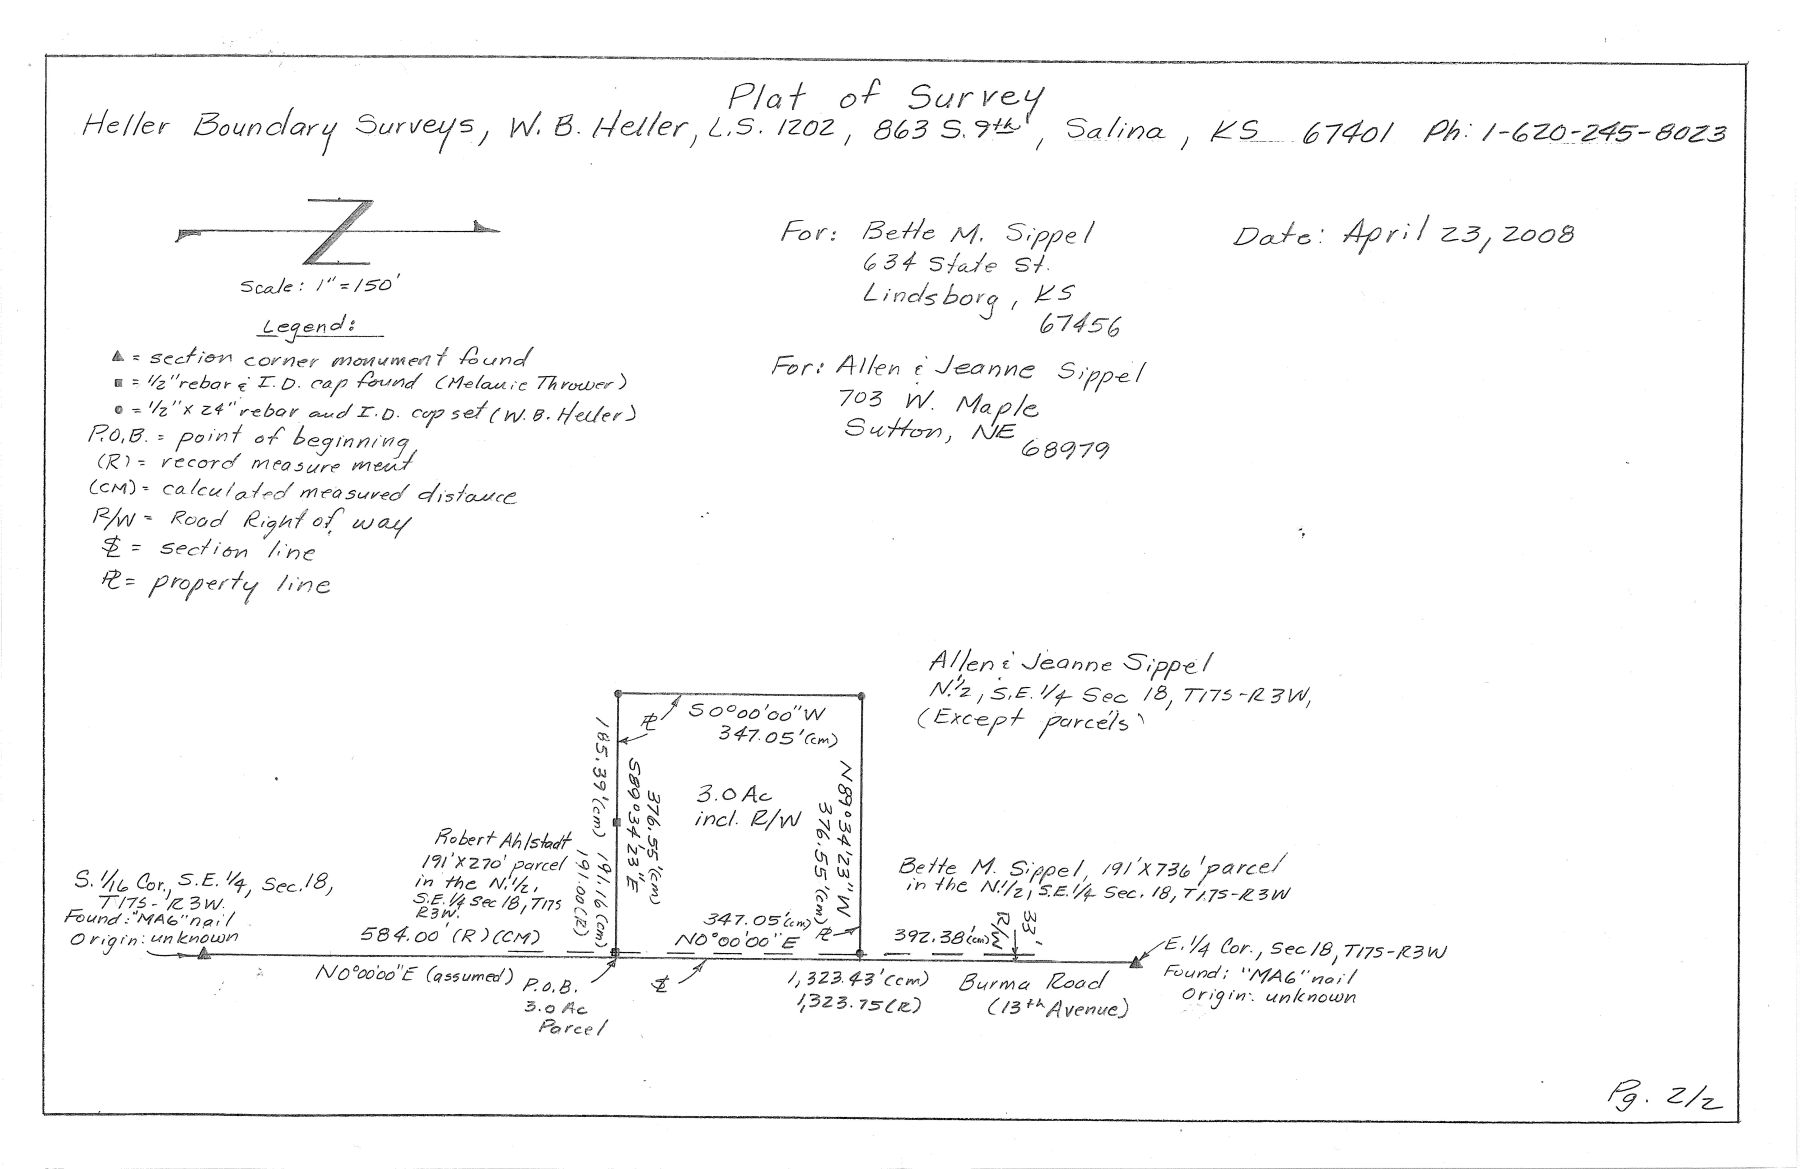 Plat of Survey
Heller Boundary Surveys, W. B. Heller, L.S. 1202, 863 S. 9th, Salina, KS 67401 Ph: 1-620-245-8023
Z
Scale: 1" = 150'
Legend:
▲ = section corner monument found
■ = 1/2" rebar & I.D. cap found (Melanie Thrower)
● = 1/2" X 24" rebar and I.D. cap set (W. B. Heller)
P.O.B. = point of beginning
(R) = record measurement
(CM) = calculated measured distance
R/W = Road Right of way
SL = section line
PL = property line
For: Bette M. Sippel
634 State St.
Lindsborg, KS
67456
For: Allen & Jeanne Sippel
703 W. Maple
Sutton, NE
68979
Date: April 23, 2008
Allen & Jeanne Sippel
N.1/2, S.E.1/4 Sec 18, T17S-R3W,
(Except parcels)
PL
S0°00'00"W
347.05'(cm)
185.39'(cm)
191.16(cm)
191.00(R)
S89°34'23"E
376.55'(cm)
3.0 Ac
incl. R/W
N89°34'23"W
376.55'(cm)
PL
347.05'(cm)
N0°00'00"E
Robert Ahlstadt
191'X270' parcel
in the N.1/2,
S.E.1/4 Sec 18, T17S
R3W.
Bette M. Sippel, 191'X736' parcel
in the N.1/2, S.E.1/4 Sec. 18, T17S-R3W
S. 1/16 Cor., S.E. 1/4, Sec. 18,
T17S-R3W.
Found: "MAG" nail
Origin: unknown
584.00' (R)(CM)
392.38'(cm)
33'
R/W
E.1/4 Cor., Sec 18, T17S-R3W
Found: "MAG" nail
Origin: unknown
N0°00'00"E (assumed)
P.O.B.
3.0 Ac
Parcel
SL
1,323.43'(cm)
1,323.75(R)
Burma Road
(13th Avenue)
Pg. 2/2